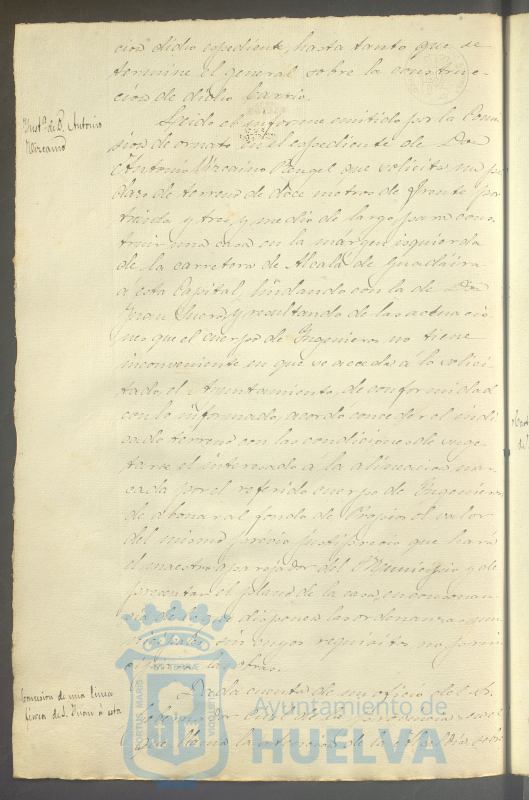 cion dicho expediente, hasta tanto que se
termine el general sobre la construc-
cion de dicho barrio.
Inst.ª de D. Antonio
Vizcaino
Leido el informe emitido por la Comi-
sion de ornato en el expediente de Don
Antonio Vizcaino Rengel que solicita un pe-
dazo de terreno de doce metros de frente por
treinta y tres y medio de largo para cons-
truir una casa en la márgen izquierda
de la carretera de Alcalá de Guadaira
á esta Capital, lindando con la de Don
Juan y resultando de las actuacio-
nes que el cuerpo de Ingenieros no tiene
inconveniente en que se acceda á lo solici-
tado, el Ayuntamiento, de conformidad
con lo informado, acordó conceder el indi-
cado terreno con las condiciones de suge-
tarse el interesado á la alineacion mar-
cada por el referido cuerpo de Ingenieros,
de abonar al fondo de Propios el valor
del mismo, previo justiprecio que hará
el maestro aparejador del Municipio y de
presentar el plano de la casa, en consonan-
cia de lo que disponen las ordenanzas mu-
nicipales sin cuyos requisitos no
la obra.
Comision de una linea
ferrea de S. Juan á esta
Dada cuenta de un oficio del S.
Gobernador Civil de la provincia en el
que llama la atencion de la
PORTUS MARIS
Ayuntamiento de
HUELVA